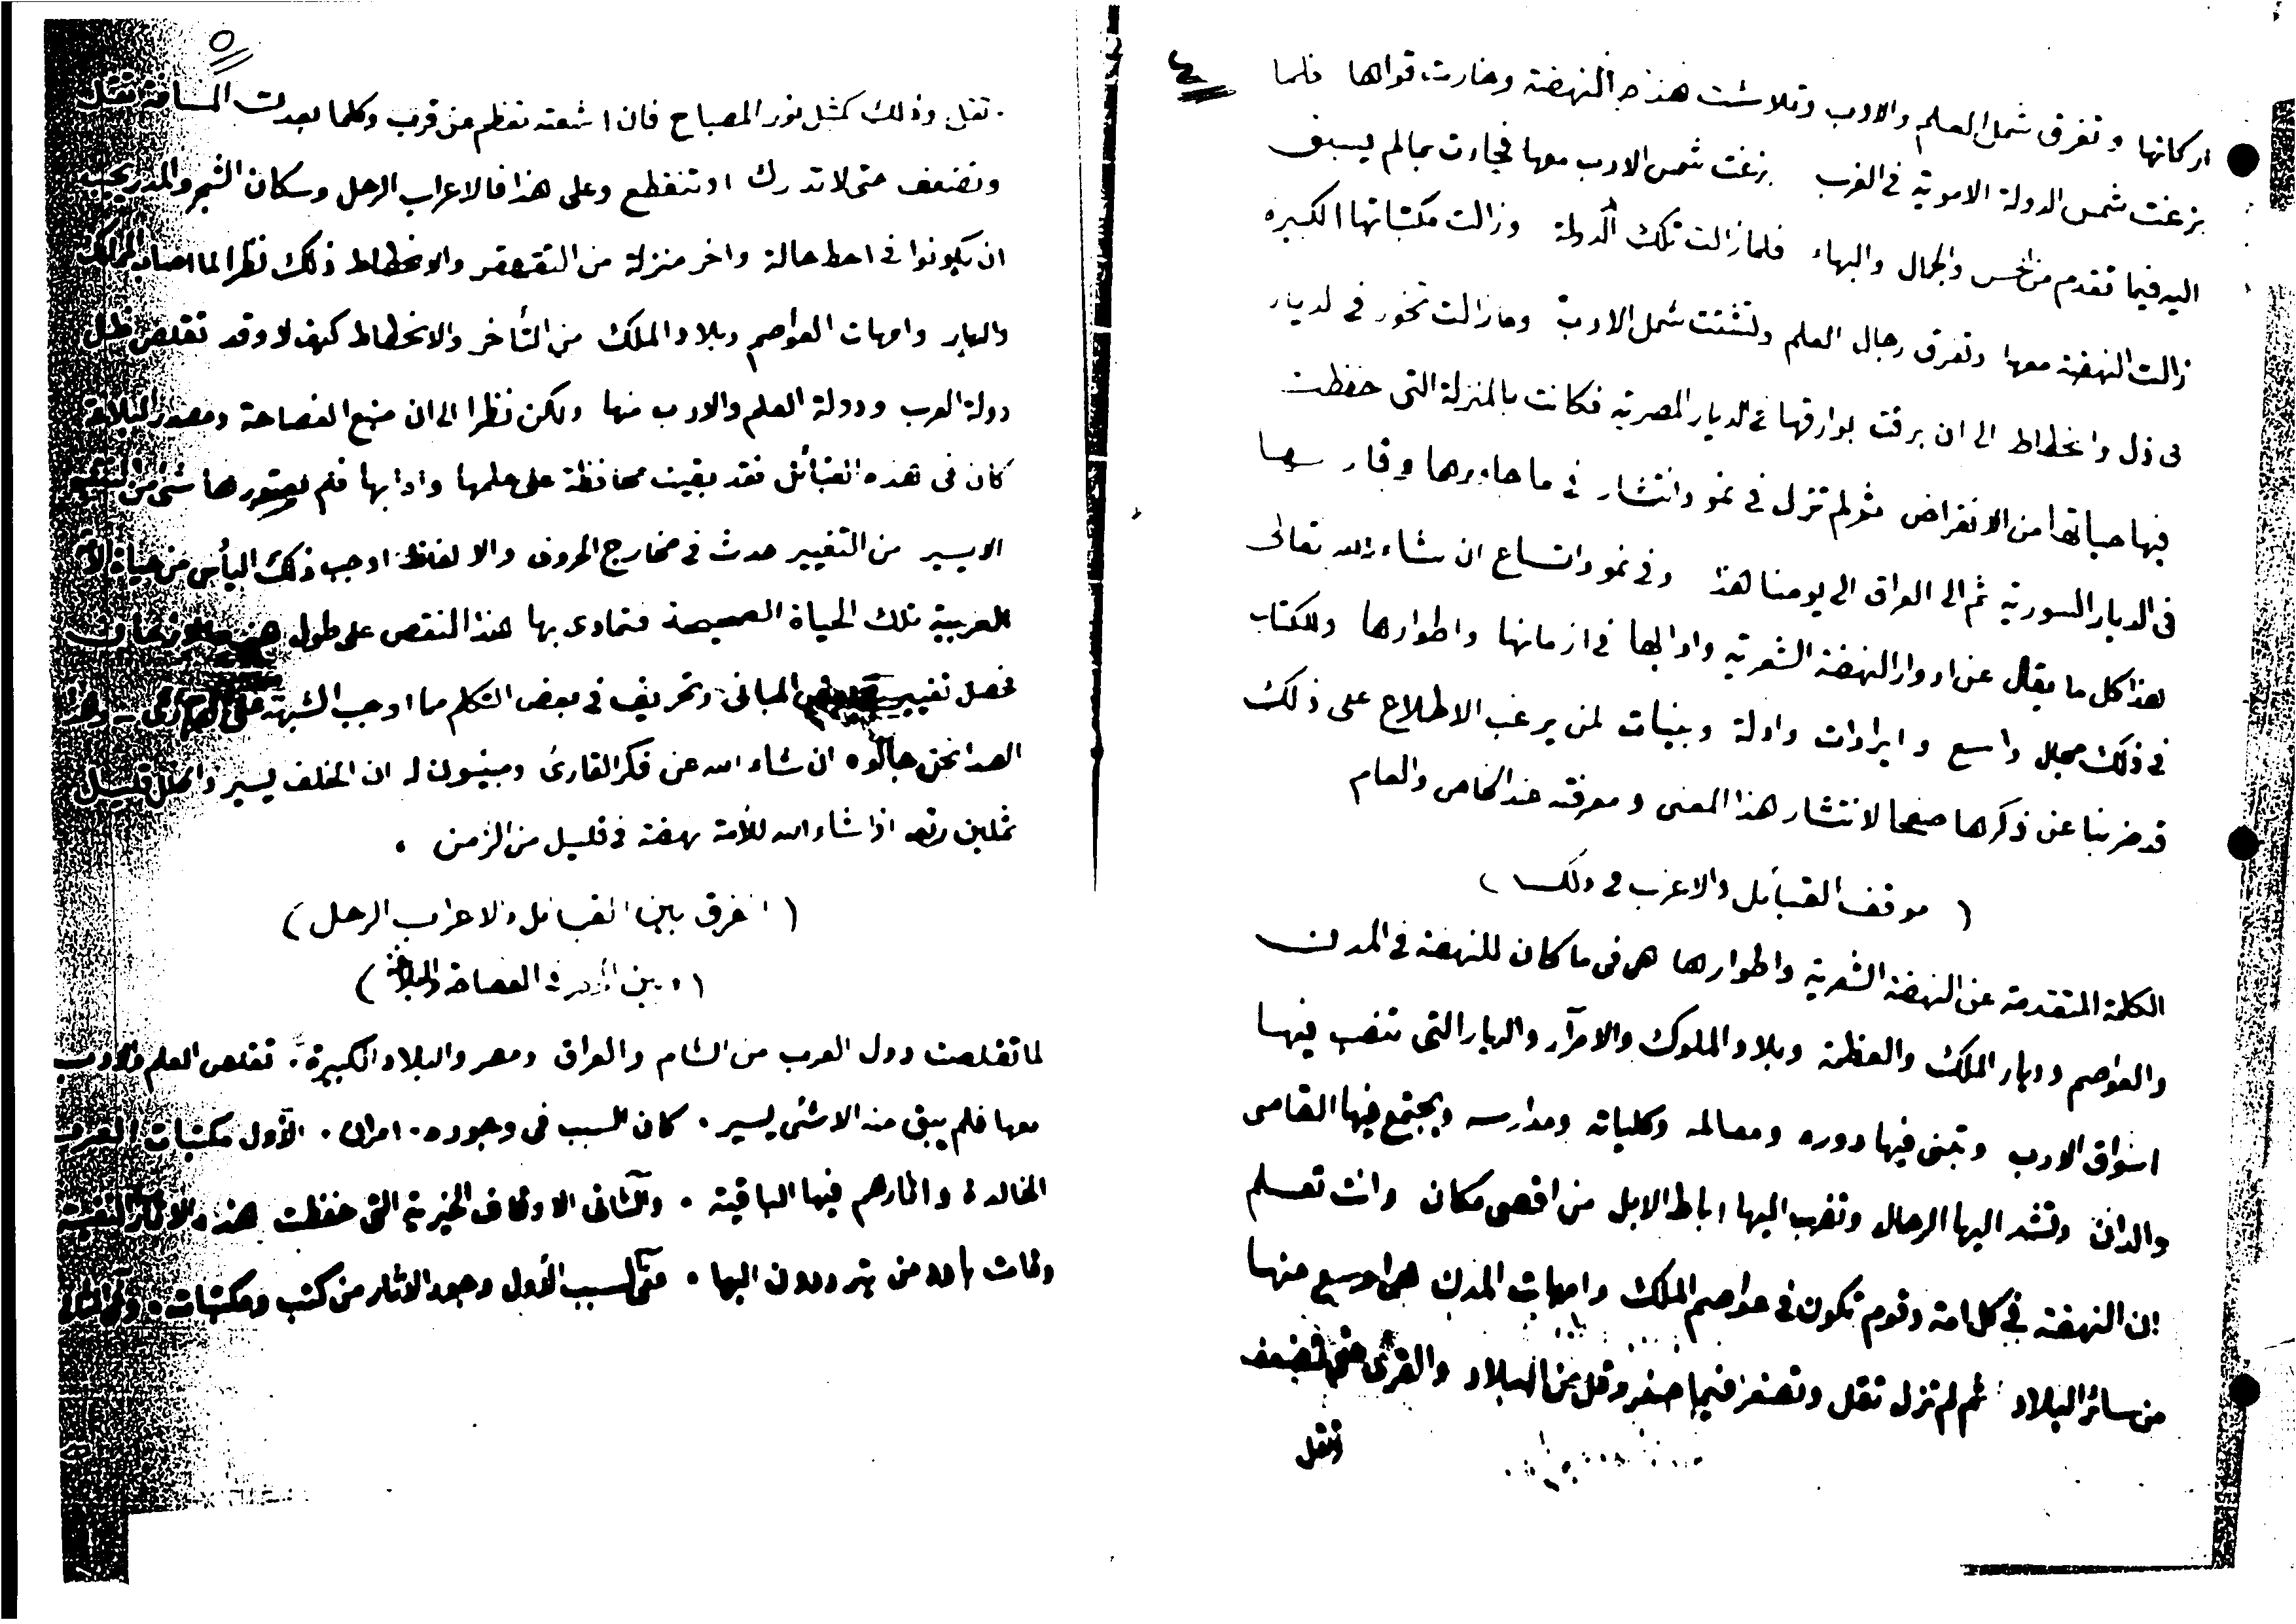 ٤
اركانها وتفرق شمل العلم والادب وتلاشت هذه النهضة وخارت قواها فلما
بزغت شمس الدولة الاموية في الغرب بزغت شمس الادب معها فجاءت بما لم يسبق
اليه فيما تقدم من الحسن والجمال والبهاء فلما زالت تلك الدولة وزالت مكتباتها الكبيره
زالت النهضة معها وتفرق رجال العلم وتشتت شمل الادب وما زالت تخور في لديار
في ذل وانحطاط الى ان برقت بوارقها في الديار المصرية فكانت بالمنزلة التي حفظت
فيها حياتها من الانقراض ثم لم تزل في نمو وانتشار في ما جاورها وقار سها
في الديار السورية ثم الى العراق الى يومنا هذا وفي نمو واتساع ان شاء الله تعالى
هذا كل ما يقال عن ادوار النهضة الشعرية وادابها في ازمانها واطوارها وللكتاب
في ذلك مجال واسع و ايرادات وادلة وبينات لمن يرغب الاطلاع على ذلك
قد ضربنا عن ذكرها صفحا لانتشار هذا المعنى ومعرفته عند الخاص والعام
( موقف القبائل والاعرب في ذلك )
الكلمة المتقدمة عن النهضة الشعرية واطوارها هي في ما كان للنهضة في المدن
والعواصم وديار الملك والعظمة وبلاد الملوك والامرآء والديار التي تنصب فيها
اسواق الادب وتبنى فيها دوره ومعالمه وكلياته ومدارسه ويجتمع فيها القاصى
والداني وتشد اليها الرحال وتضرب اليها اباط الابل من اقصى مكان وانت تعلم
ان النهضة في كل امة وقوم تكون في عواصم الملك وامهات المدن هي اوسع منها
من سائر البلاد ثم لم تزل تقل وتصغر فيما صغر وقل من البلاد والقرى حتى تضعف
وتقل
٥
تقل وذلك كمثل نور المصباح فان اشعته تعظم عن قرب وكلما بعدت المسافة تقل
وتضعف حتى لا تدرك او تنقطع وعلى هذا فالاعراب الرحل وسكان الشجر والمدر يجب
ان يكونوا في احط حالة واخر منزلة من التقهقر والانحطاط ذلك نظرا لما اصاب الممالك
والديار وامهات العواصم وبلاد الملك من التأخر والانحطاط كيف لا وقد تقلص ظل
دولة العرب ودولة العلم والادب منها ولكن نظرا الى ان منبع الفصاحة ومصدر البلاغة
كان في هذه القبائل فقد بقيت محافظة على علمها وادابها فلم يعتورها شئ من التغيير
الا يسير من التغيير حدث في مخارج الحروف والالفاظ اوجب ذلك اليأس من حياة
العربية تلك الحياة الصحيحة فتمادى بها هذا النقص على طول هذه الازمان
فحصل تغيير المباني وتحريف في بعض التكلم مما اوجب الشبهة على القارئ وهذا
الصدا نحن جالوه ان شاء الله عن فكر القارئ ومبينون له ان الخلف يسير والخلل قليل
ثملين رتعه اذا شاء الله للأمة نهضة في قليل من الزمن .
( الفرق بين القبائل والاعراب الرحل )
( وبين في الفصاحة والبلاغة )
لما تقلصت دول العرب من الشام والعراق ومصر والبلاد الكبيرة . تقلص العلم والادب
معها فلم يبق منه الا شئ يسير . كان السبب في وجوده . امران . الأول مكتبات العرب
الخالدة واثارهم فيها الباقية . والثاني الاوقاف الخيرية التي حفظت هذه الاثار النفيسة
وقات باود من يترددون اليها . فقى السبب الأول وجود الاثار من كتب ومكتبات . وفي الثاني